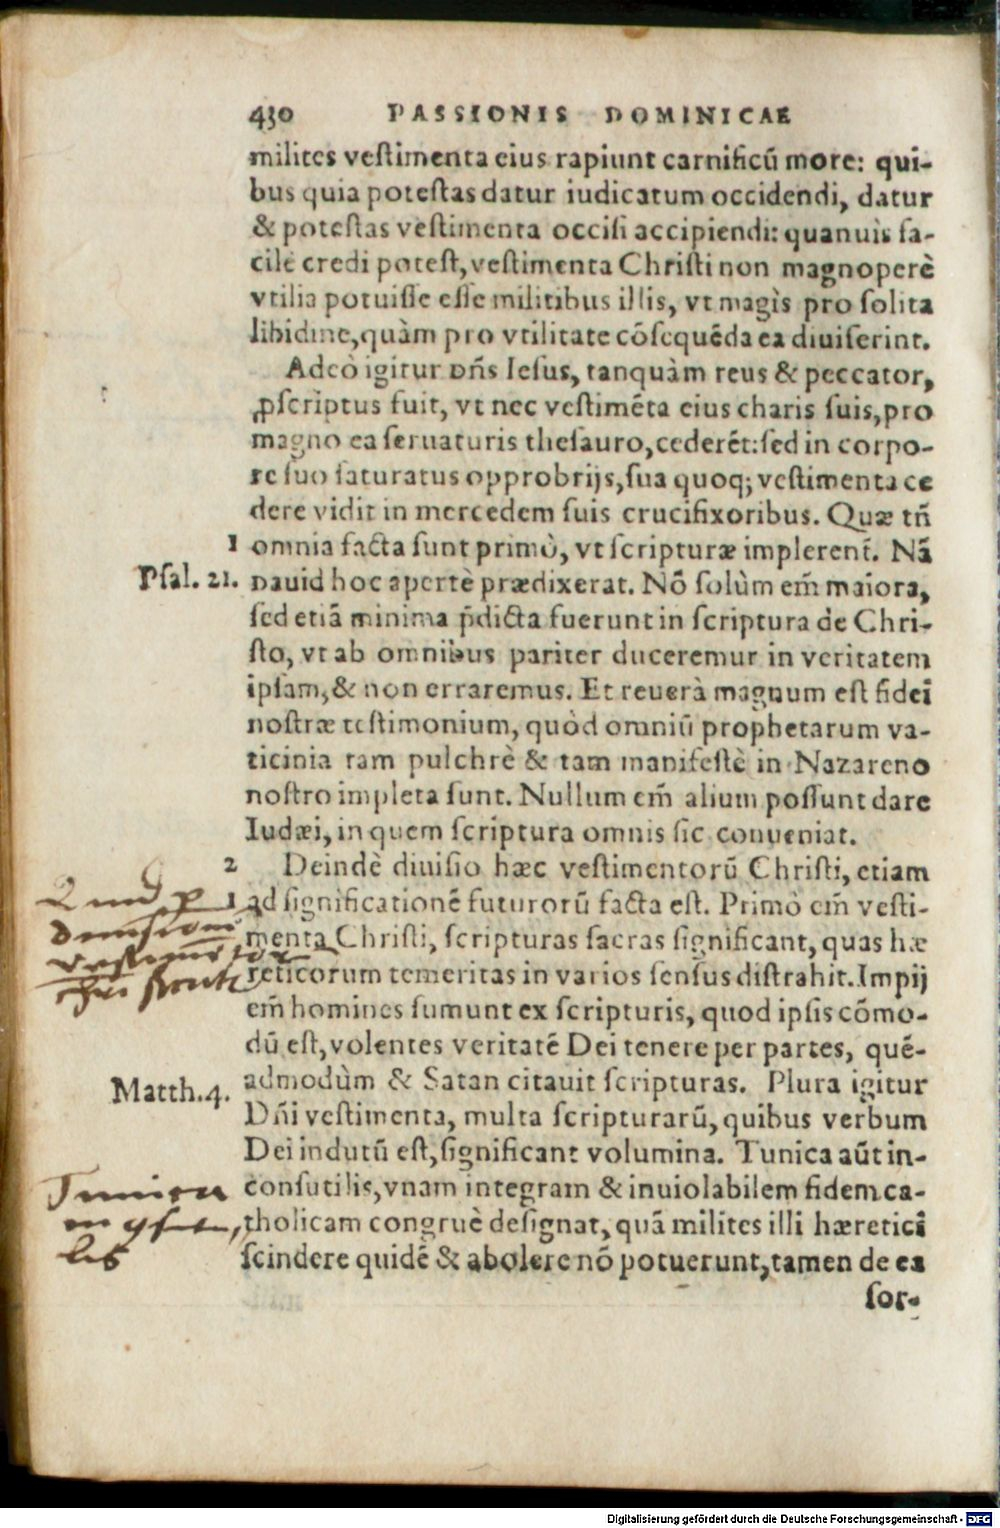 430 PASSIONIS DOMINICAE
milites vestimenta eius rapiunt carnificū more: qui-
bus quia potestas datur iudicatum occidendi, datur
& potestas vestimenta occisi accipiendi: quanuìs fa-
cilè credi potest, vestimenta Christi non magnoperè
vtilia potuisse esse militibus illis, vt magìs pro solita
libidine, quàm pro vtilitate cōsequēda ea diuiserint.
Adeò igitur Dn̄s Iesus, tanquàm reus & peccator,
ꝓscriptus fuit, vt nec vestimēta eius charis suis, pro
magno ea seruaturis thesauro, cederēt: sed in corpo-
re suo saturatus opprobrijs, sua quoq; vestimenta ce
dere vidit in mercedem suis crucifixoribus. Quæ tn̄
1 omnia facta sunt primò, vt scripturæ implerent̄. Nā
Psal. 21. Dauid hoc apertè prædixerat. Nō solùm em̄ maiora,
sed etiā minima p̄dicta fuerunt in scriptura de Chri-
sto, vt ab omnibus pariter duceremur in veritatem
ipsam, & non erraremus. Et reuerà magnum est fidei
nostræ testimonium, quòd omniū prophetarum va-
ticinia tam pulchrè & tam manifestè in Nazareno
nostro impleta sunt. Nullum em̄ alium possunt dare
Iudæi, in quem scriptura omnis sic conueniat.
2 Deindè diuisio hæc vestimentorū Christi, etiam
1 ad significationē futurorū facta est. Primò em̄ vesti-
menta Christi, scripturas sacras significant, quas hæ
reticorum temeritas in varios sensus distrahit. Impij
em̄ homines sumunt ex scripturis, quod ipsis cōmo-
dū est, volentes veritatē Dei tenere per partes, quē-
Matth. 4. admodùm & Satan citauit scripturas. Plura igitur
Dn̄i vestimenta, multa scripturarū, quibus verbum
Dei indutū est, significant volumina. Tunica aūt in-
Tunica
consutilis, vnam integram & inuiolabilem fidem ca-
tholicam congruè designat, quā milites illi hæretici
scindere quidē & abolere nō potuerunt, tamen de ea
sor-
Digitalisierung gefördert durch die Deutsche Forschungsgemeinschaft - DFG